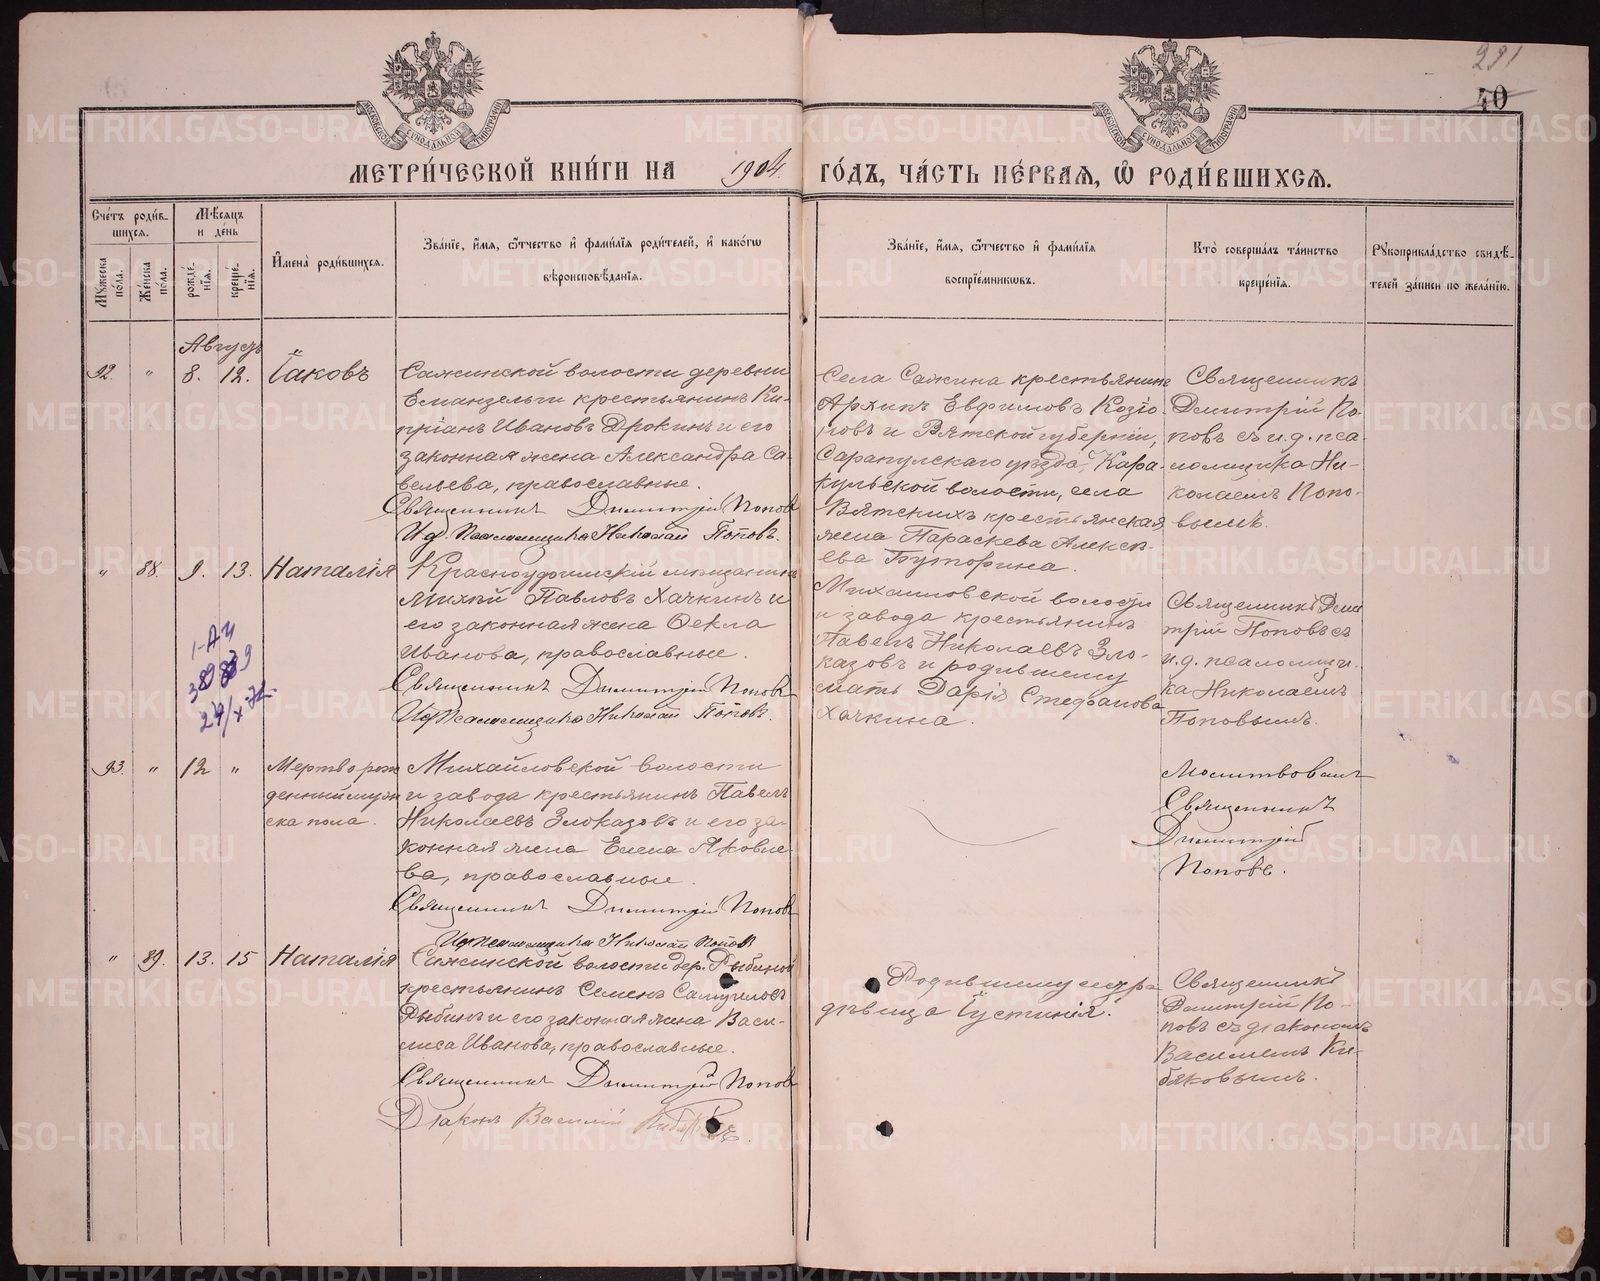 291
40
МОСКОВСКОЙ СѴНОДАЛЬНОЙ ТИПОГРАФІИ
МОСКОВСКОЙ СѴНОДАЛЬНОЙ ТИПОГРАФІИ
МЕТРИ́ЧЕСКОЙ КНИ́ГИ НА 1904 ГО́ДЪ, ЧА́СТЬ ПЕ́РВАЯ, Ѽ РОДИ́ВШИХСЯ.
Сче́тъ роди́в-
шихся.
Мѣ́сяцъ
и де́нь
Мꙋ́жеска по́ла.
Же́нска по́ла.
рожде́-
нїя.
креще́-
нїя.
И҆мена̀ роди́вшихся.
Зва́нїе, и҆́мя, ѻ҆́тчество и҆ фами́лїя роди́телей, и҆ како́гѡ
вѣроисповѣ́данїя.
Зва́нїе, и҆́мя, ѻ҆́тчество и҆ фами́лїя
воспрїе́мникѡвъ.
Кто̀ соверша́лъ та́инство
креще́нїя.
Рꙋкоприкла́дство свидѣ́-
телей за́писи по жела́нїю.
Августъ
92. " 8. 12. Іаковъ
Сажинской волости деревни
Еманзельги крестьянинъ Ки-
пріанъ Ивановъ Дрокинъ и его
законная жена Александра Са-
вельева, православные.
Священникъ Димитрій Попов
И.д. Псаломщика Николай Поповъ.
Села Сажина крестьянинъ
Архипъ Евфимовъ
и Вятской губерніи,
Сарапулскаго уѣзда, Кара-
кульской волости, села
Вятскихъ крестьянская
жена Параскева Алексѣ-
ева Буторина.
Священникъ
Димитрій По-
повъ съ и.д. пса-
ломщика Ни-
колаемъ Попо-
вымъ.
" 88. 9. 13. Наталія
Красноуфимскій мѣщанинъ
Павловъ Хачкинъ и
его законная жена Ѳекла
Иванова, православные.
Священникъ Димитрій Попов
ИдПсаломщика Николай Поповъ.
Михайловской волости
и завода крестьянинъ
Павелъ Николаевъ Зло-
казовъ и родившему
мать Дарія Стефанова
Хачкина.
Священникъ Дми
трій Поповъ съ
и.д. псаломщи-
ка Николаемъ
Поповымъ.
93. " 12 " Мертворож
денный муж
ска пола.
Михайловской волости
и завода крестьянинъ Павелъ
Николаевъ Злоказовъ и его за-
конная жена Елена Яковле-
ва, православные.
Священникъ Димитрій Попов
ИдПсаломщика Николай Попов
Молитвовалъ
Священникъ
Димитрій
Поповъ.
" 89. 13. 15 Наталія
Сажинской волости дер. Рыбиной
крестьянинъ Семенъ Самуиловъ
Рыбинъ и его законная жена Васи-
лиса Иванова, православные.
Священникъ Димитрій Попов
Діаконъ Василій
Родившему сестра
дѣвица Іустинія.
Священникъ
Димитрій По-
повъ съ діакономъ
Василіемъ Ки-
бяковымъ.
METRIKI.GASO-URAL.RU